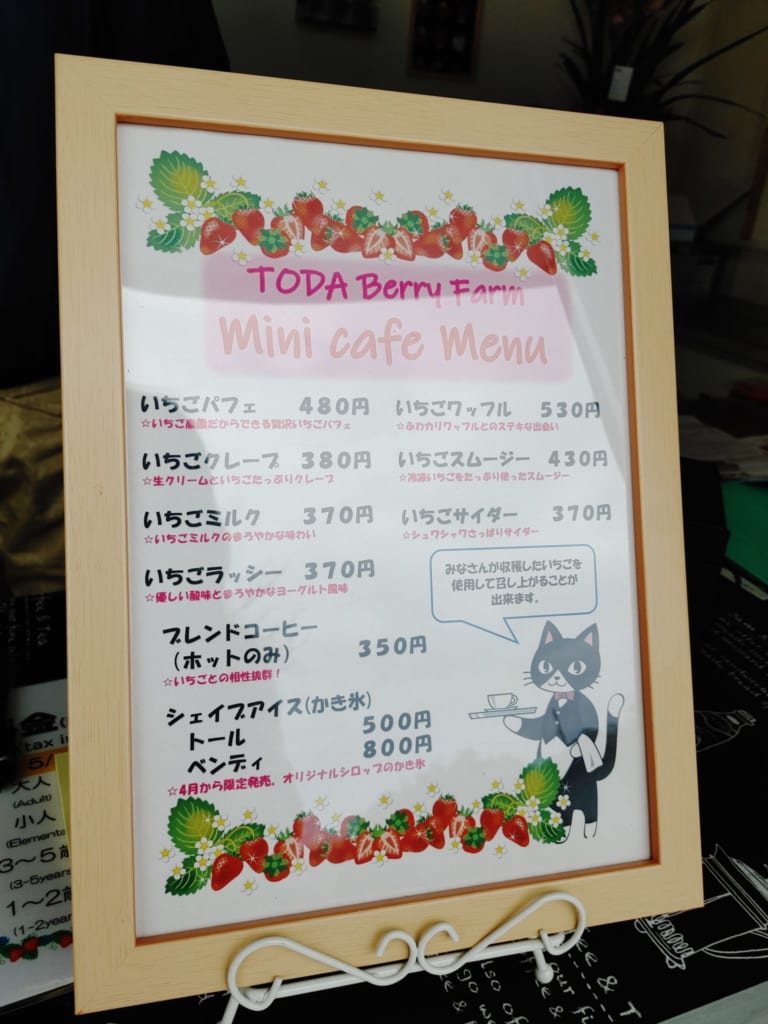 TODA Berry Farm
Mini cafe Menu
いちごパフェ 480円
☆いちご農園だからできる贅沢いちごパフェ
いちごワッフル 530円
☆ふわカリワッフルとのステキな出会い
いちごクレープ 380円
☆生クリームといちごたっぷりクレープ
いちごスムージー 430円
☆冷凍いちごをたっぷり使ったスムージー
いちごミルク 370円
☆いちごミルクのまろやかな味わい
いちごサイダー 370円
☆シュワシャワさっぱりサイダー
いちごラッシー 370円
☆優しい酸味とまろやかなヨーグルト風味
みなさんが収穫したいちごを
使用して召し上がることが
出来ます。
ブレンドコーヒー
(ホットのみ) 350円
☆いちごとの相性抜群!
シェイブアイス(かき氷)
トール 500円
ベンディ 800円
☆4月から限定発売。オリジナルシロップのかき氷
金
(tax in
5/
大人
(Adult)
小人
(Elementa
3～5歳
(3-5years
1～2歳
(1-2years